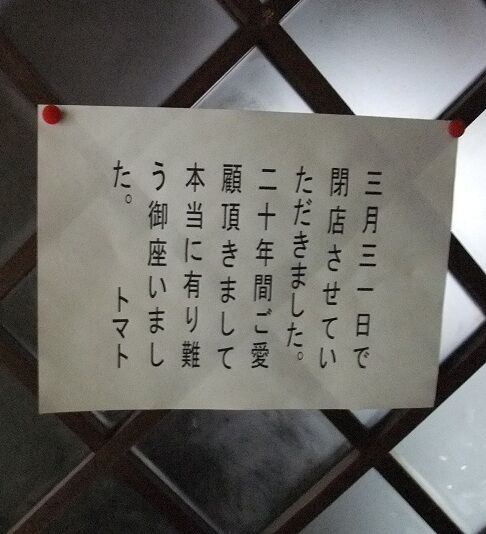 三月三一日で
閉店させてい
ただきました。
二十年間ご愛
顧頂きまして
本当に有り難
う御座いまし
た。　トマト